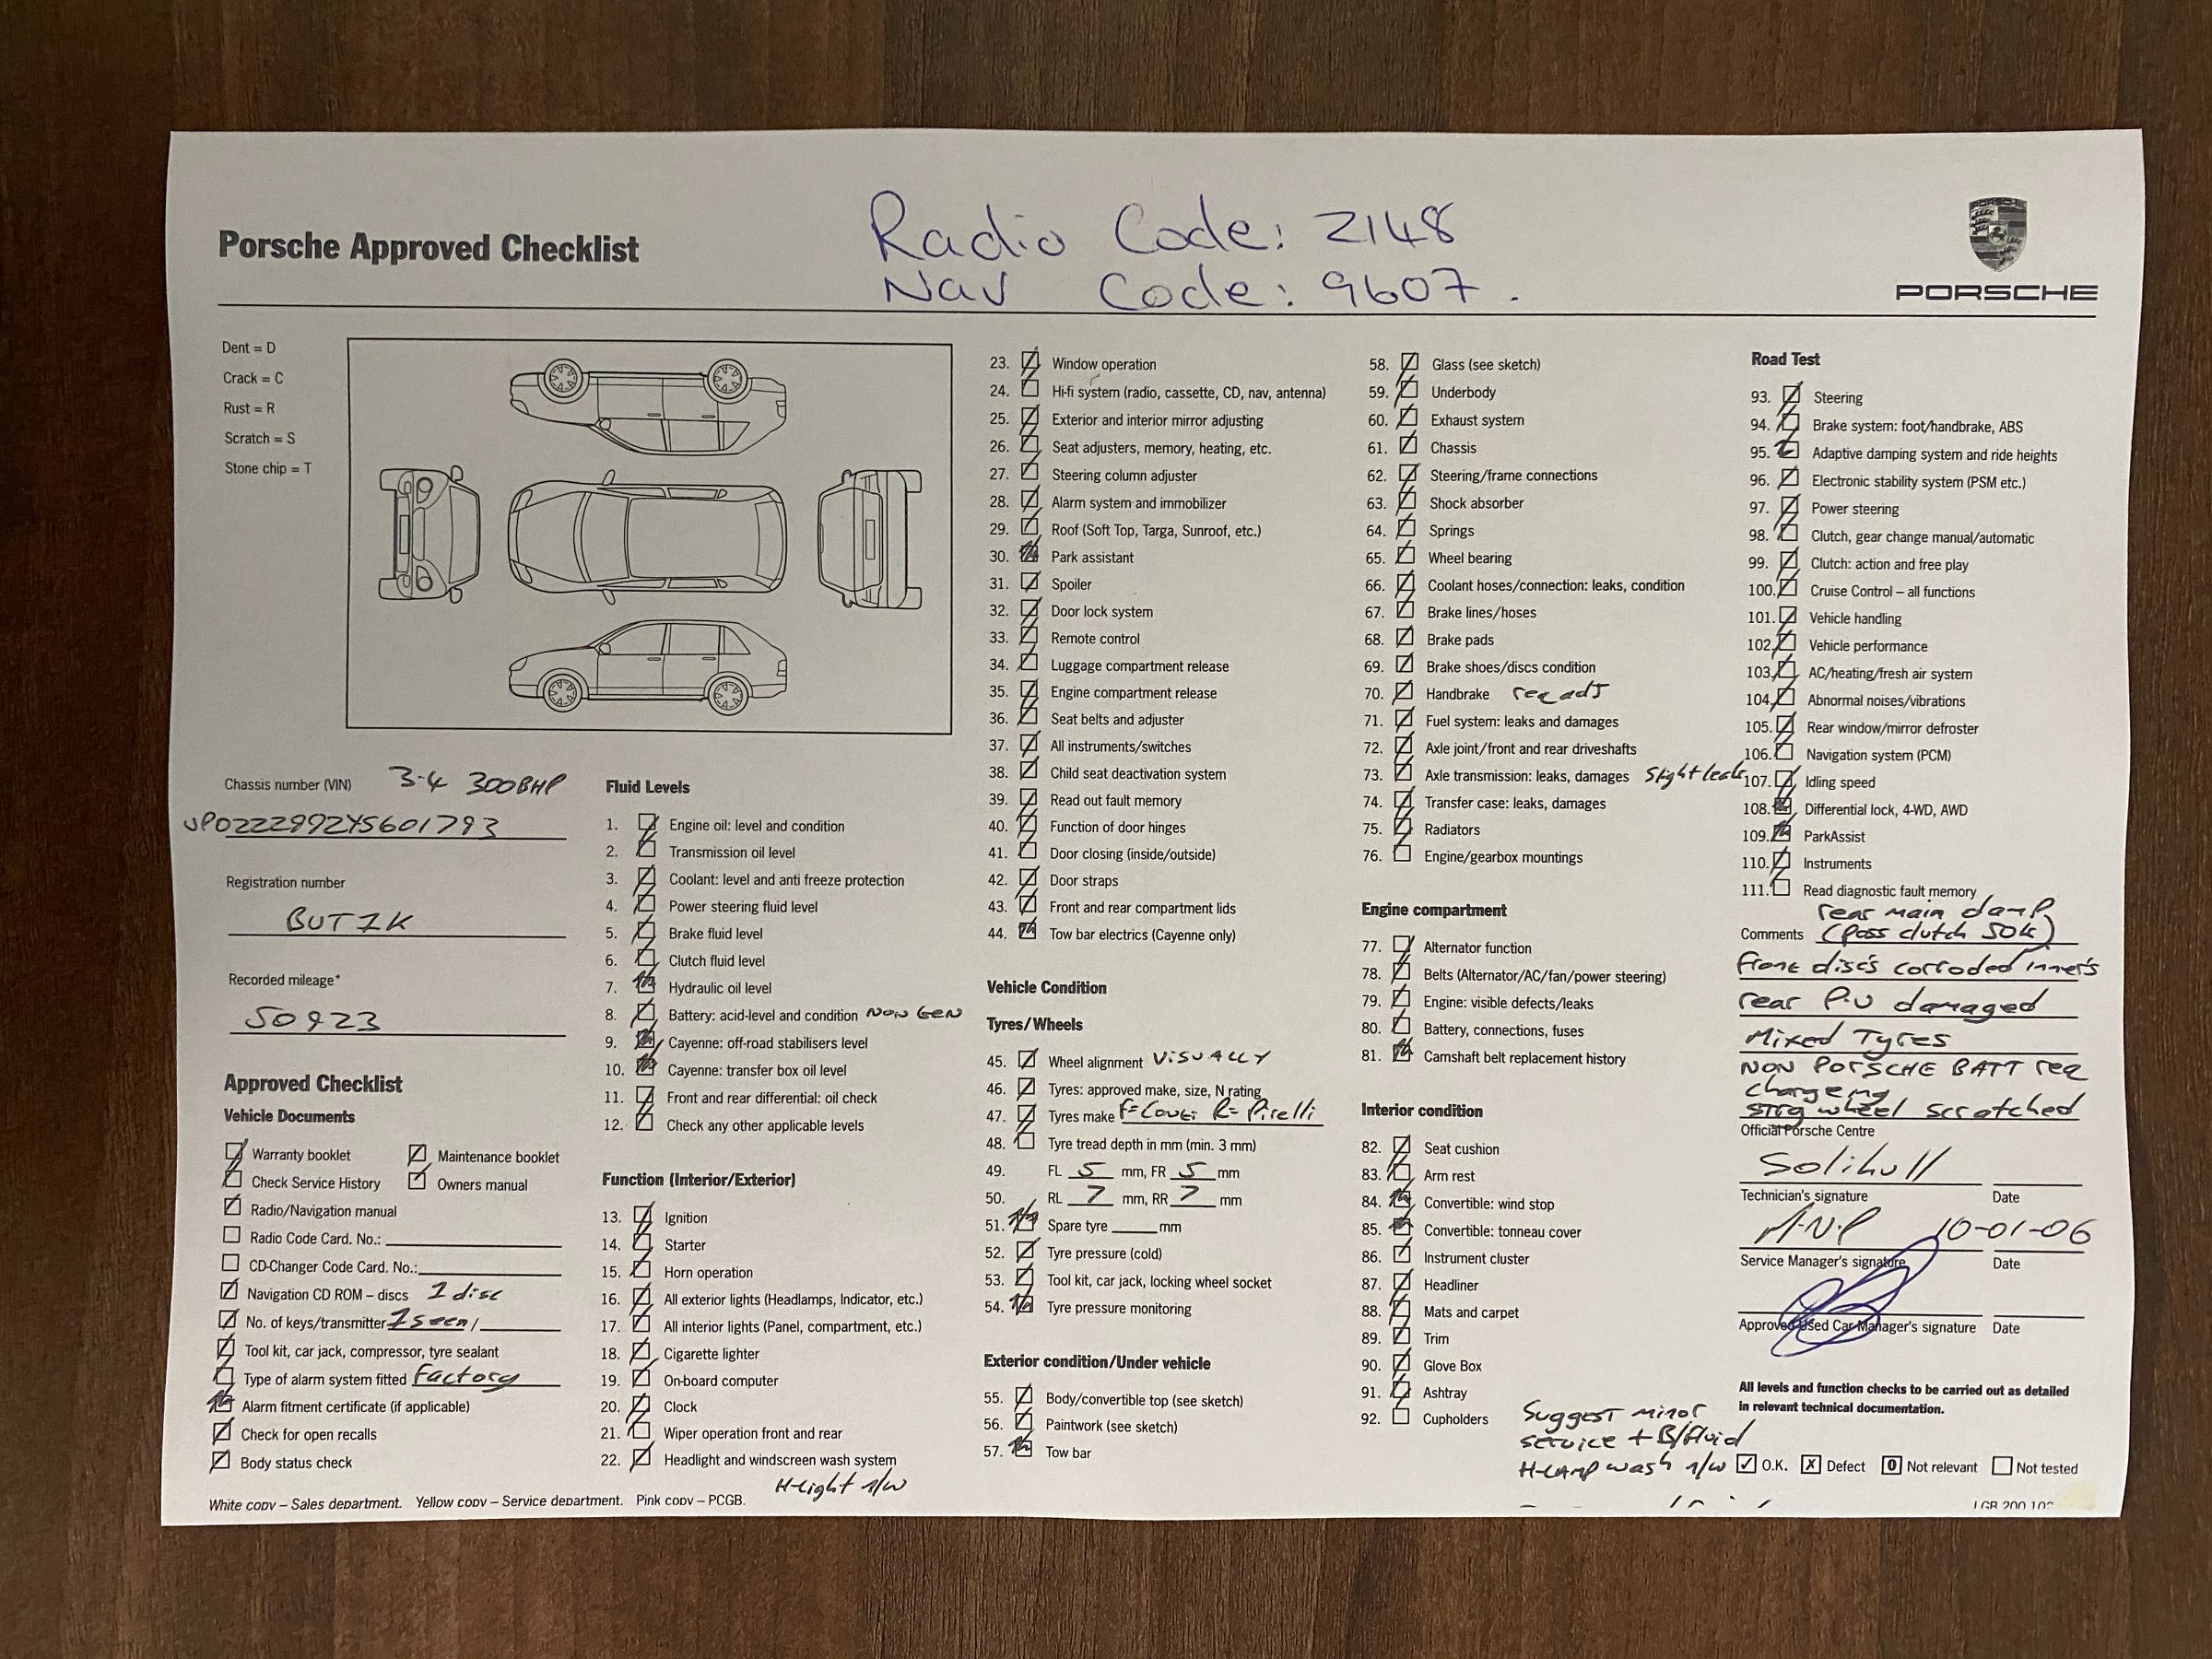 Radio Code: 2148
Nav Code: 9607.
Porsche Approved Checklist
PORSCHE
PORSCHE
Dent = D
Crack = C
Rust = R
Scratch = S
Stone chip = T
Chassis number (VIN) 3.4 300BHP
Registration number
Recorded mileage*
50923
Approved Checklist
Vehicle Documents
Warranty booklet
Maintenance booklet
Check Service History
Owners manual
Radio/Navigation manual
Radio Code Card. No.:
CD-Changer Code Card. No.:
Navigation CD ROM – discs 1 disc
No. of keys/transmitter 1 seen /
Tool kit, car jack, compressor, tyre sealant
Type of alarm system fitted Factory
Alarm fitment certificate (if applicable)
Check for open recalls
Body status check
White copy – Sales department. Yellow copy – Service department. Pink copy – PCGB.
Fluid Levels
1. Engine oil: level and condition
2. Transmission oil level
3. Coolant: level and anti freeze protection
4. Power steering fluid level
5. Brake fluid level
6. Clutch fluid level
7. Hydraulic oil level
8. Battery: acid-level and condition NON GEN
9. Cayenne: off-road stabilisers level
10. Cayenne: transfer box oil level
11. Front and rear differential: oil check
12. Check any other applicable levels
Function (Interior/Exterior)
13. Ignition
14. Starter
15. Horn operation
16. All exterior lights (Headlamps, Indicator, etc.)
17. All interior lights (Panel, compartment, etc.)
18. Cigarette lighter
19. On-board computer
20. Clock
21. Wiper operation front and rear
22. Headlight and windscreen wash system
H-light n/w
23. Window operation
24. Hi-fi system (radio, cassette, CD, nav, antenna)
25. Exterior and interior mirror adjusting
26. Seat adjusters, memory, heating, etc.
27. Steering column adjuster
28. Alarm system and immobilizer
29. Roof (Soft Top, Targa, Sunroof, etc.)
30. Park assistant
31. Spoiler
32. Door lock system
33. Remote control
34. Luggage compartment release
35. Engine compartment release
36. Seat belts and adjuster
37. All instruments/switches
38. Child seat deactivation system
39. Read out fault memory
40. Function of door hinges
41. Door closing (inside/outside)
42. Door straps
43. Front and rear compartment lids
44. Tow bar electrics (Cayenne only)
Vehicle Condition
Tyres/Wheels
45. Wheel alignment VISUALLY
46. Tyres: approved make, size, N rating
47. Tyres make F= Conti R= Pirelli
48. Tyre tread depth in mm (min. 3 mm)
49. FL 5 mm, FR 5 mm
50. RL 7 mm, RR 7 mm
51. Spare tyre mm
52. Tyre pressure (cold)
53. Tool kit, car jack, locking wheel socket
54. Tyre pressure monitoring
Exterior condition/Under vehicle
55. Body/convertible top (see sketch)
56. Paintwork (see sketch)
57. Tow bar
58. Glass (see sketch)
59. Underbody
60. Exhaust system
61. Chassis
62. Steering/frame connections
63. Shock absorber
64. Springs
65. Wheel bearing
66. Coolant hoses/connection: leaks, condition
67. Brake lines/hoses
68. Brake pads
69. Brake shoes/discs condition
70. Handbrake req adj
71. Fuel system: leaks and damages
72. Axle joint/front and rear driveshafts
73. Axle transmission: leaks, damages Slight leak
74. Transfer case: leaks, damages
75. Radiators
76. Engine/gearbox mountings
Engine compartment
77. Alternator function
78. Belts (Alternator/AC/fan/power steering)
79. Engine: visible defects/leaks
80. Battery, connections, fuses
81. Camshaft belt replacement history
Interior condition
82. Seat cushion
83. Arm rest
84. Convertible: wind stop
85. Convertible: tonneau cover
86. Instrument cluster
87. Headliner
88. Mats and carpet
89. Trim
90. Glove Box
91. Ashtray
92. Cupholders
Suggest minor
service + B/fluid
H-LAMP wash n/w
Road Test
93. Steering
94. Brake system: foot/handbrake, ABS
95. Adaptive damping system and ride heights
96. Electronic stability system (PSM etc.)
97. Power steering
98. Clutch, gear change manual/automatic
99. Clutch: action and free play
100. Cruise Control – all functions
101. Vehicle handling
102. Vehicle performance
103. AC/heating/fresh air system
104. Abnormal noises/vibrations
105. Rear window/mirror defroster
106. Navigation system (PCM)
107. Idling speed
108. Differential lock, 4-WD, AWD
109. ParkAssist
110. Instruments
111. Read diagnostic fault memory
rear main damp
Comments (poss clutch 50k)
front disc's corroded inner's
rear P.U damaged
Mixed Tyres
NON PORSCHE BATT req
charging
strg wheel scratched
Official Porsche Centre
Solihull
Technician's signature Date
10-01-06
Service Manager's signature Date
Approved Used Car Manager's signature Date
All levels and function checks to be carried out as detailed
in relevant technical documentation.
O.K. X Defect 0 Not relevant Not tested